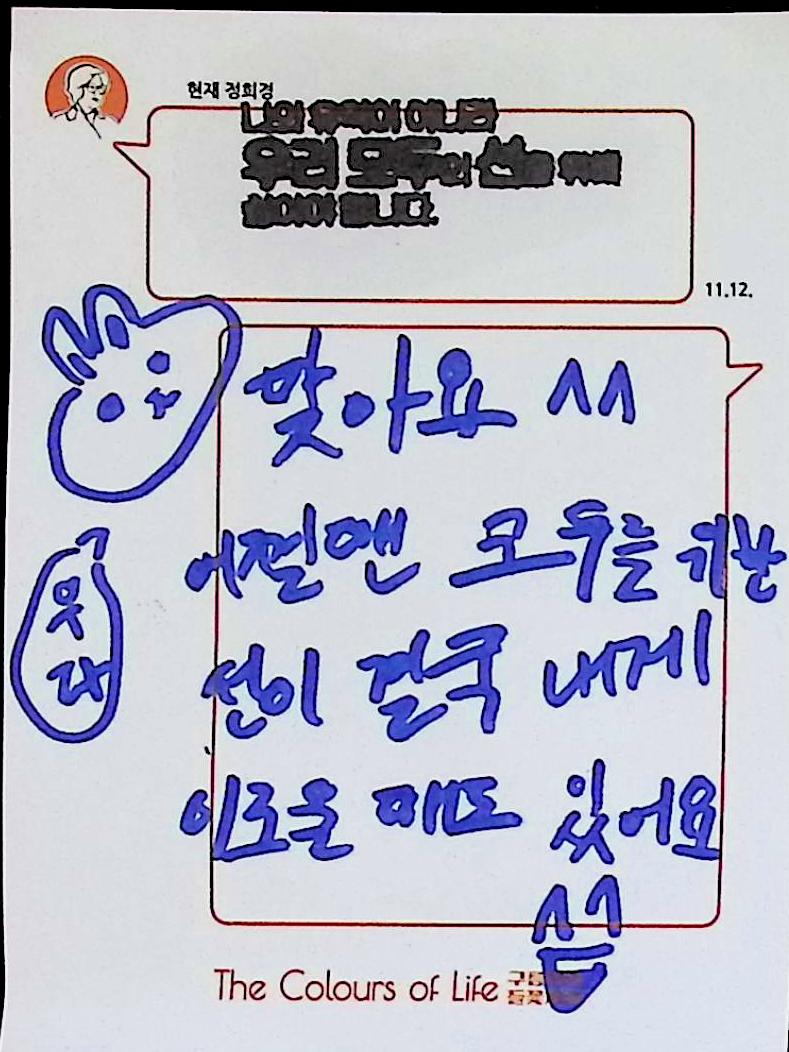 현재 정희경
나의 유익이 아니라
우리 모두의 선을 위해
쓰여야 합니다.
11.12.
맞아요 ^^
어쩔땐 모두를 위한
선이 결국 내게
이로울 때도 있어요
The Colours of Life